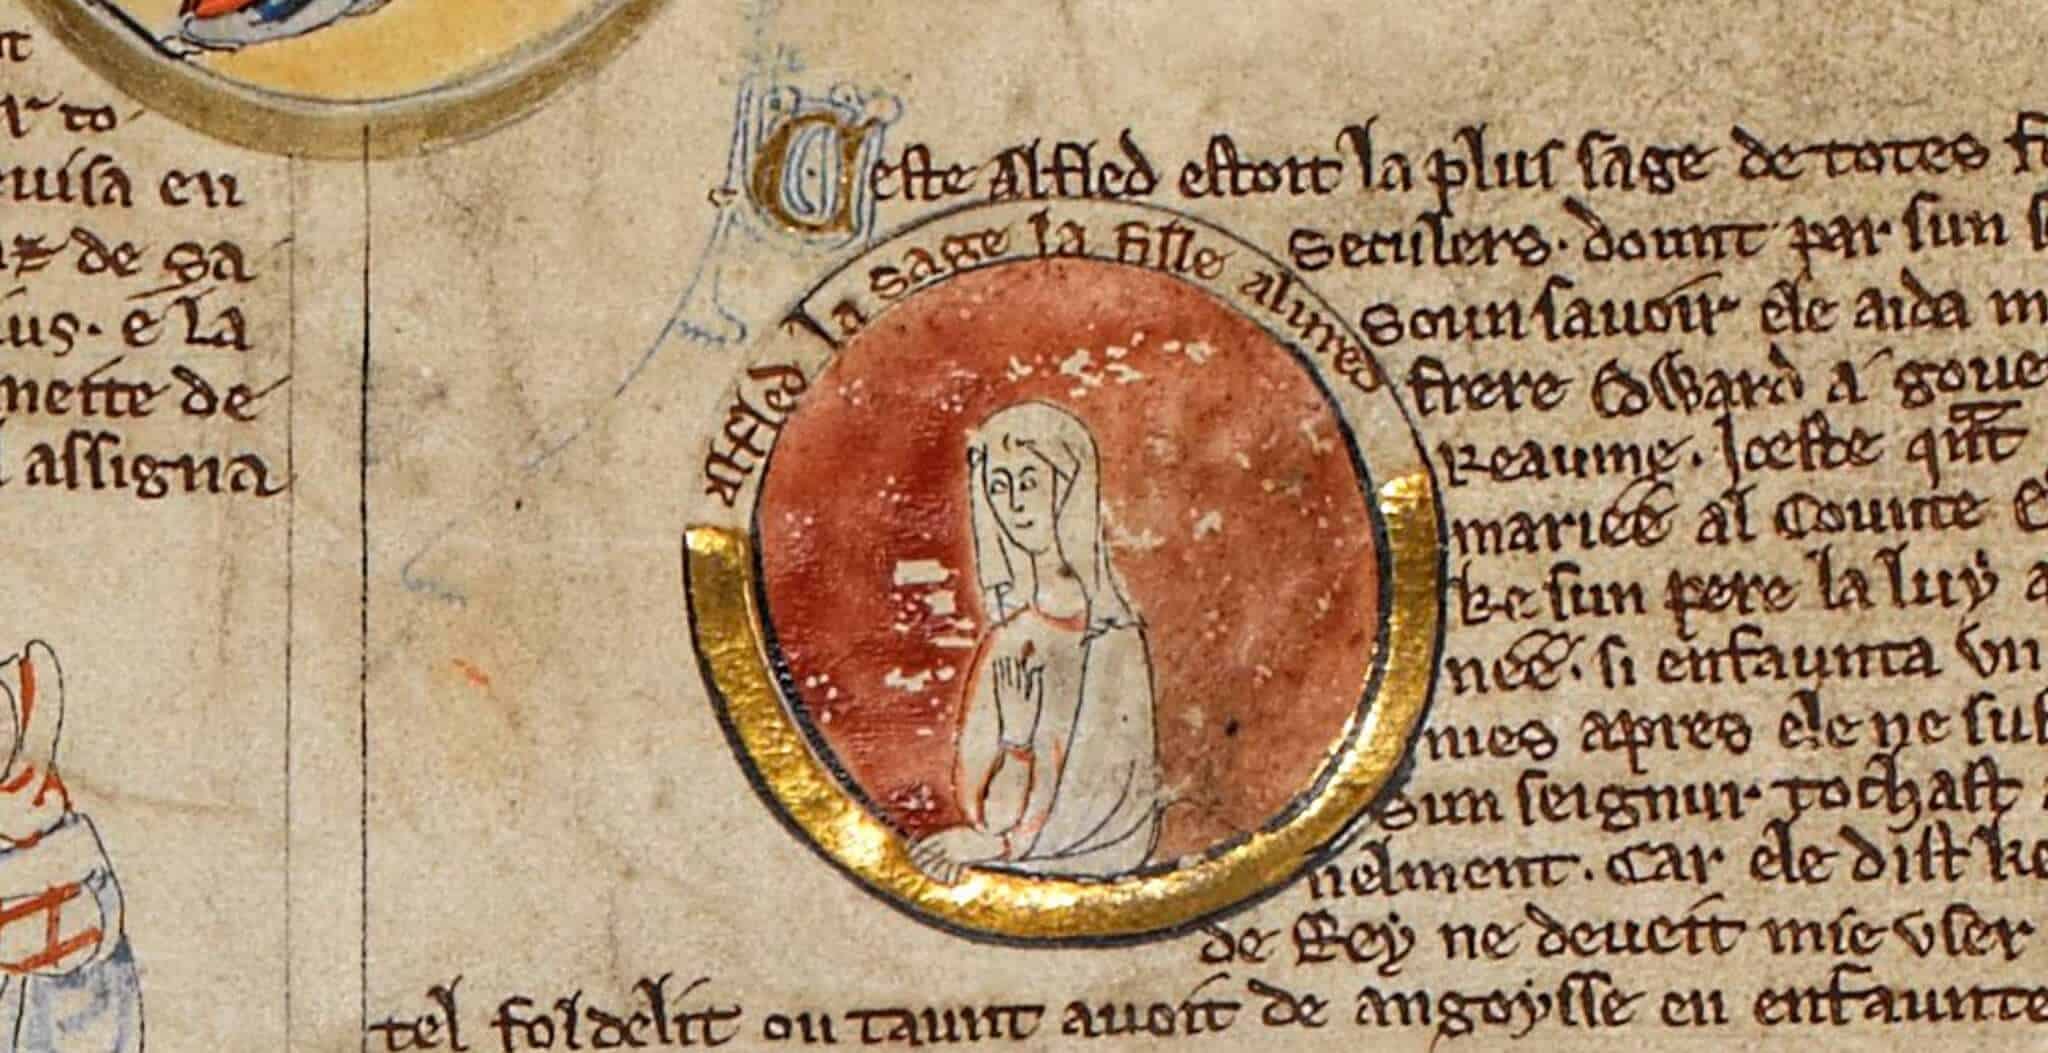 it
r to
euisa en
de sa
ius. e la
mette de
assigna
Ceste Alfled estoit la plus sage de totes
Alfled la sage la fille alured
Seculers. dount par sun
Soun sauoir ele aida
frere Edward a gouer
Reaume. Iceste
mariee al Counte
ke sun pere la luy a
nee. si enfaunta vn
mes apres ele ne suf
Sun seignur tochast
nelment. Car ele dist ke
de Rey ne deueit mie vser
tel fol delit ou taunt auoit de angoysse en enfaunte